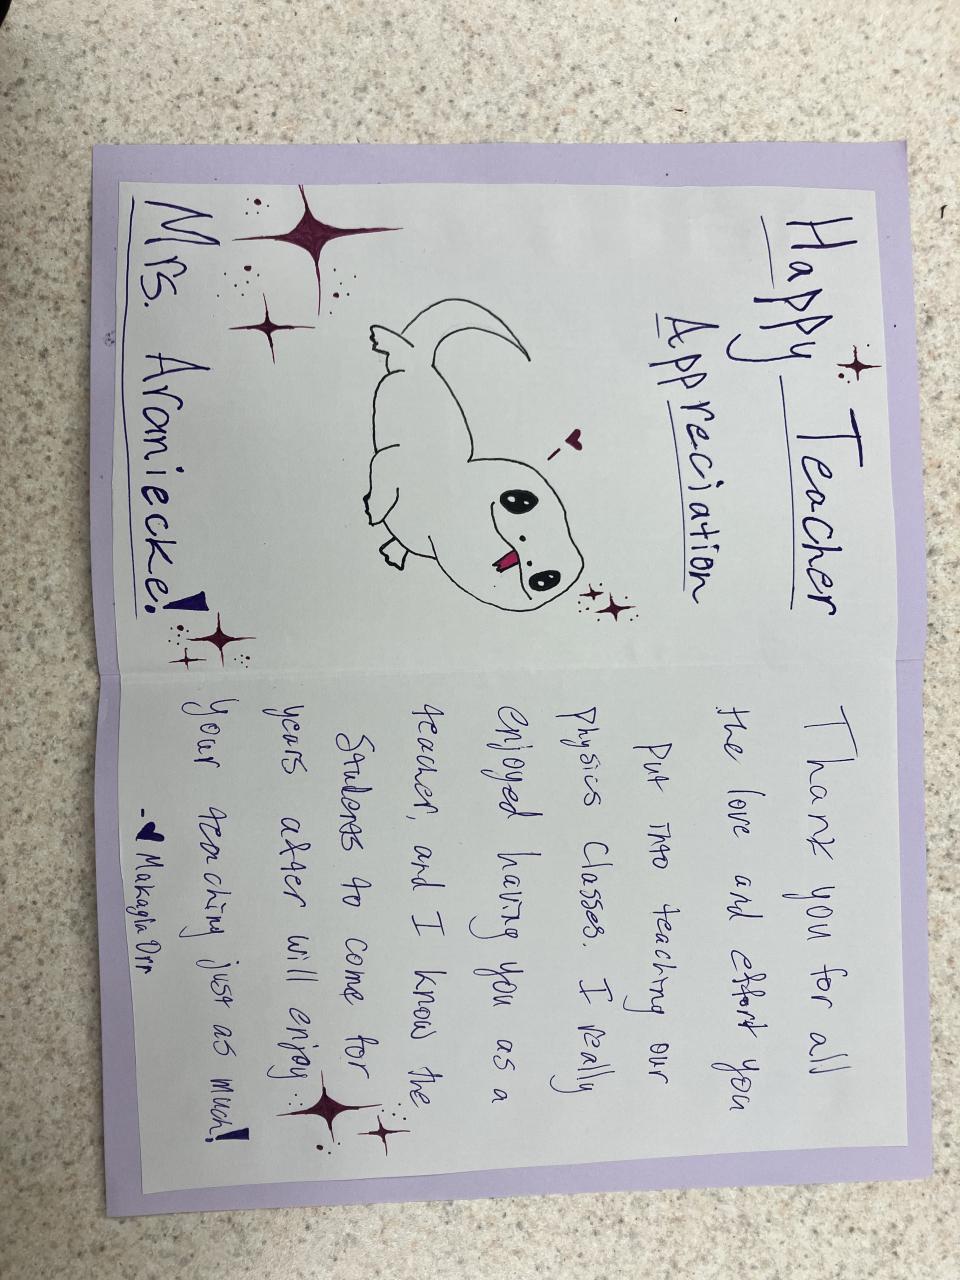 Happy Teacher
Appreciation
Mrs. Aramiecke!
Thank you for all
the love and effort you
put into teaching our
Physics classes. I really
enjoyed having you as a
teacher, and I know the
students to come for
years after will enjoy
your teaching just as much!
- Makayla Orr